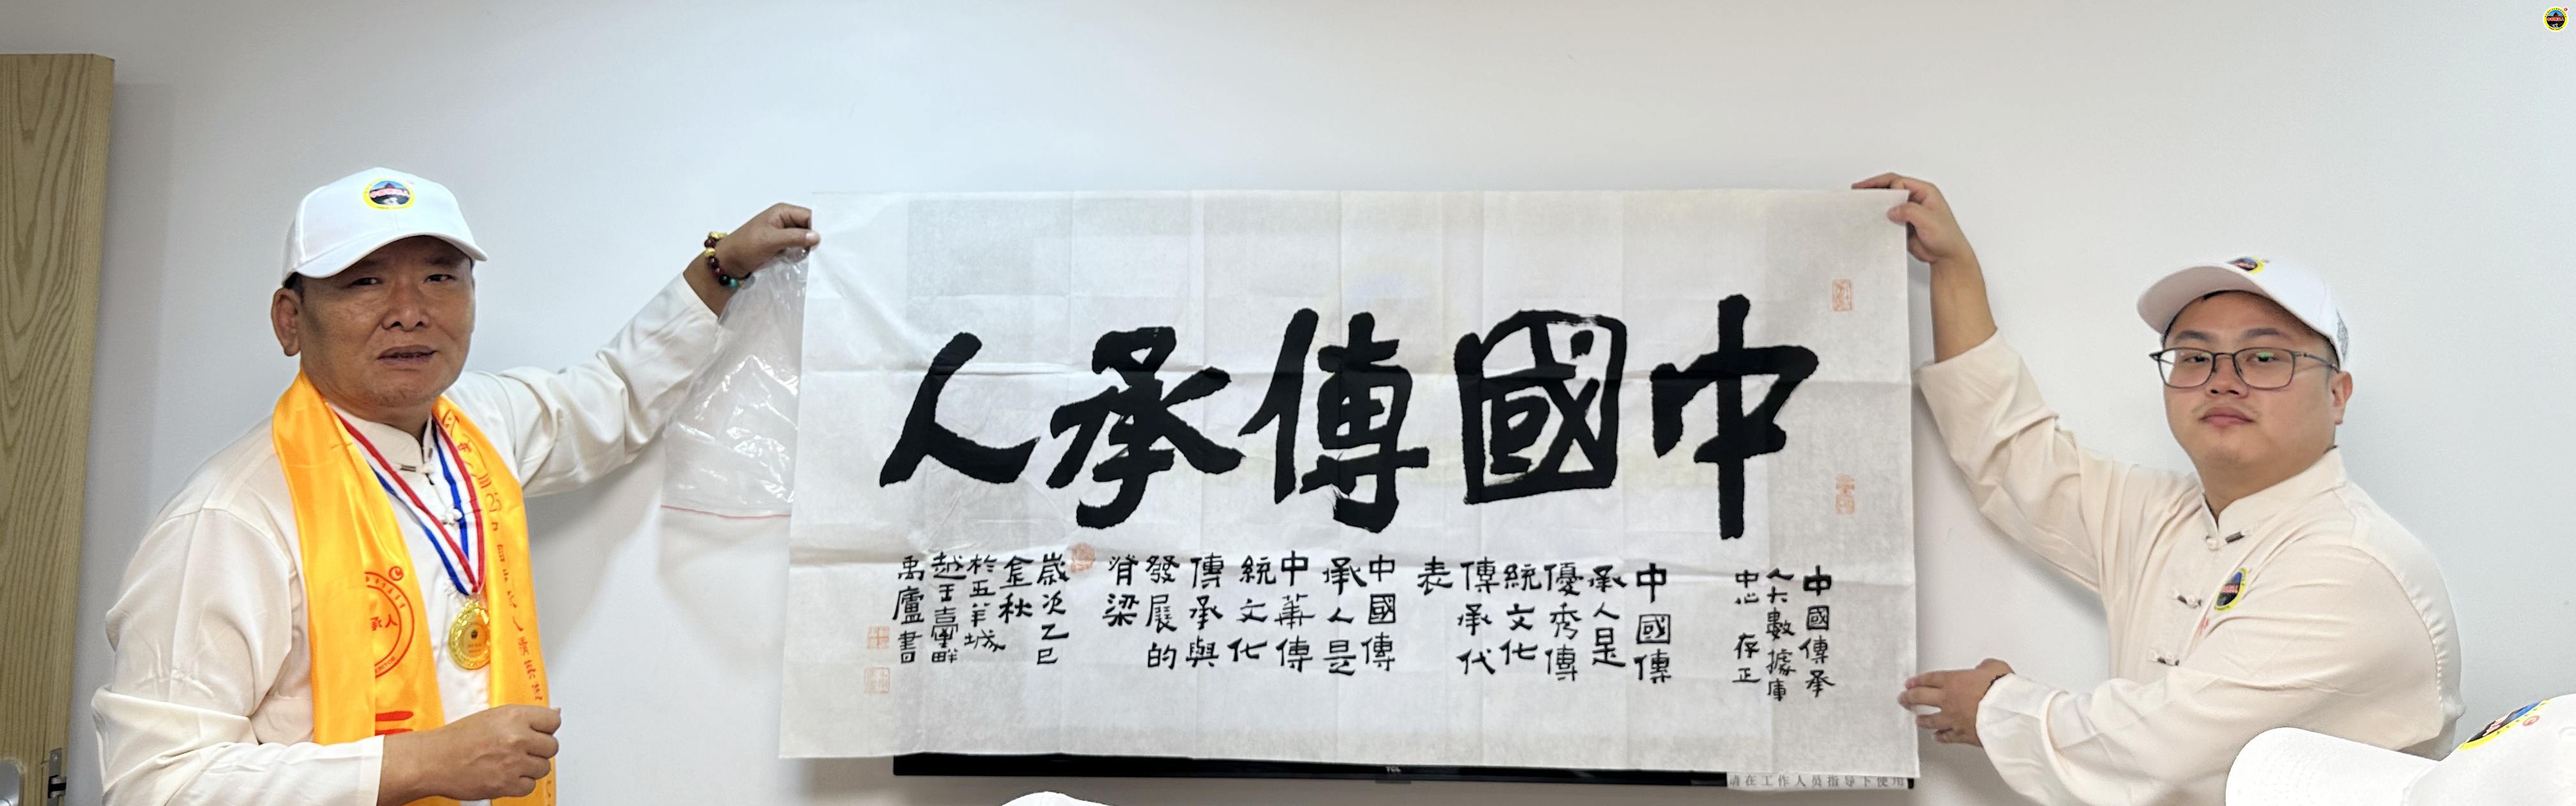 中國傳承人
中國傳承
人大數據庫
中心 存正
中國傳
承人是
優秀傳
統文化
傳承代
表
中國傳
承人是
中華傳
統文化
傳承與
發展的
脊梁
歲次乙巳
金秋
於五羊城
越王臺畔
禹廬書
承人
TCL
请在工作人员指导下使用